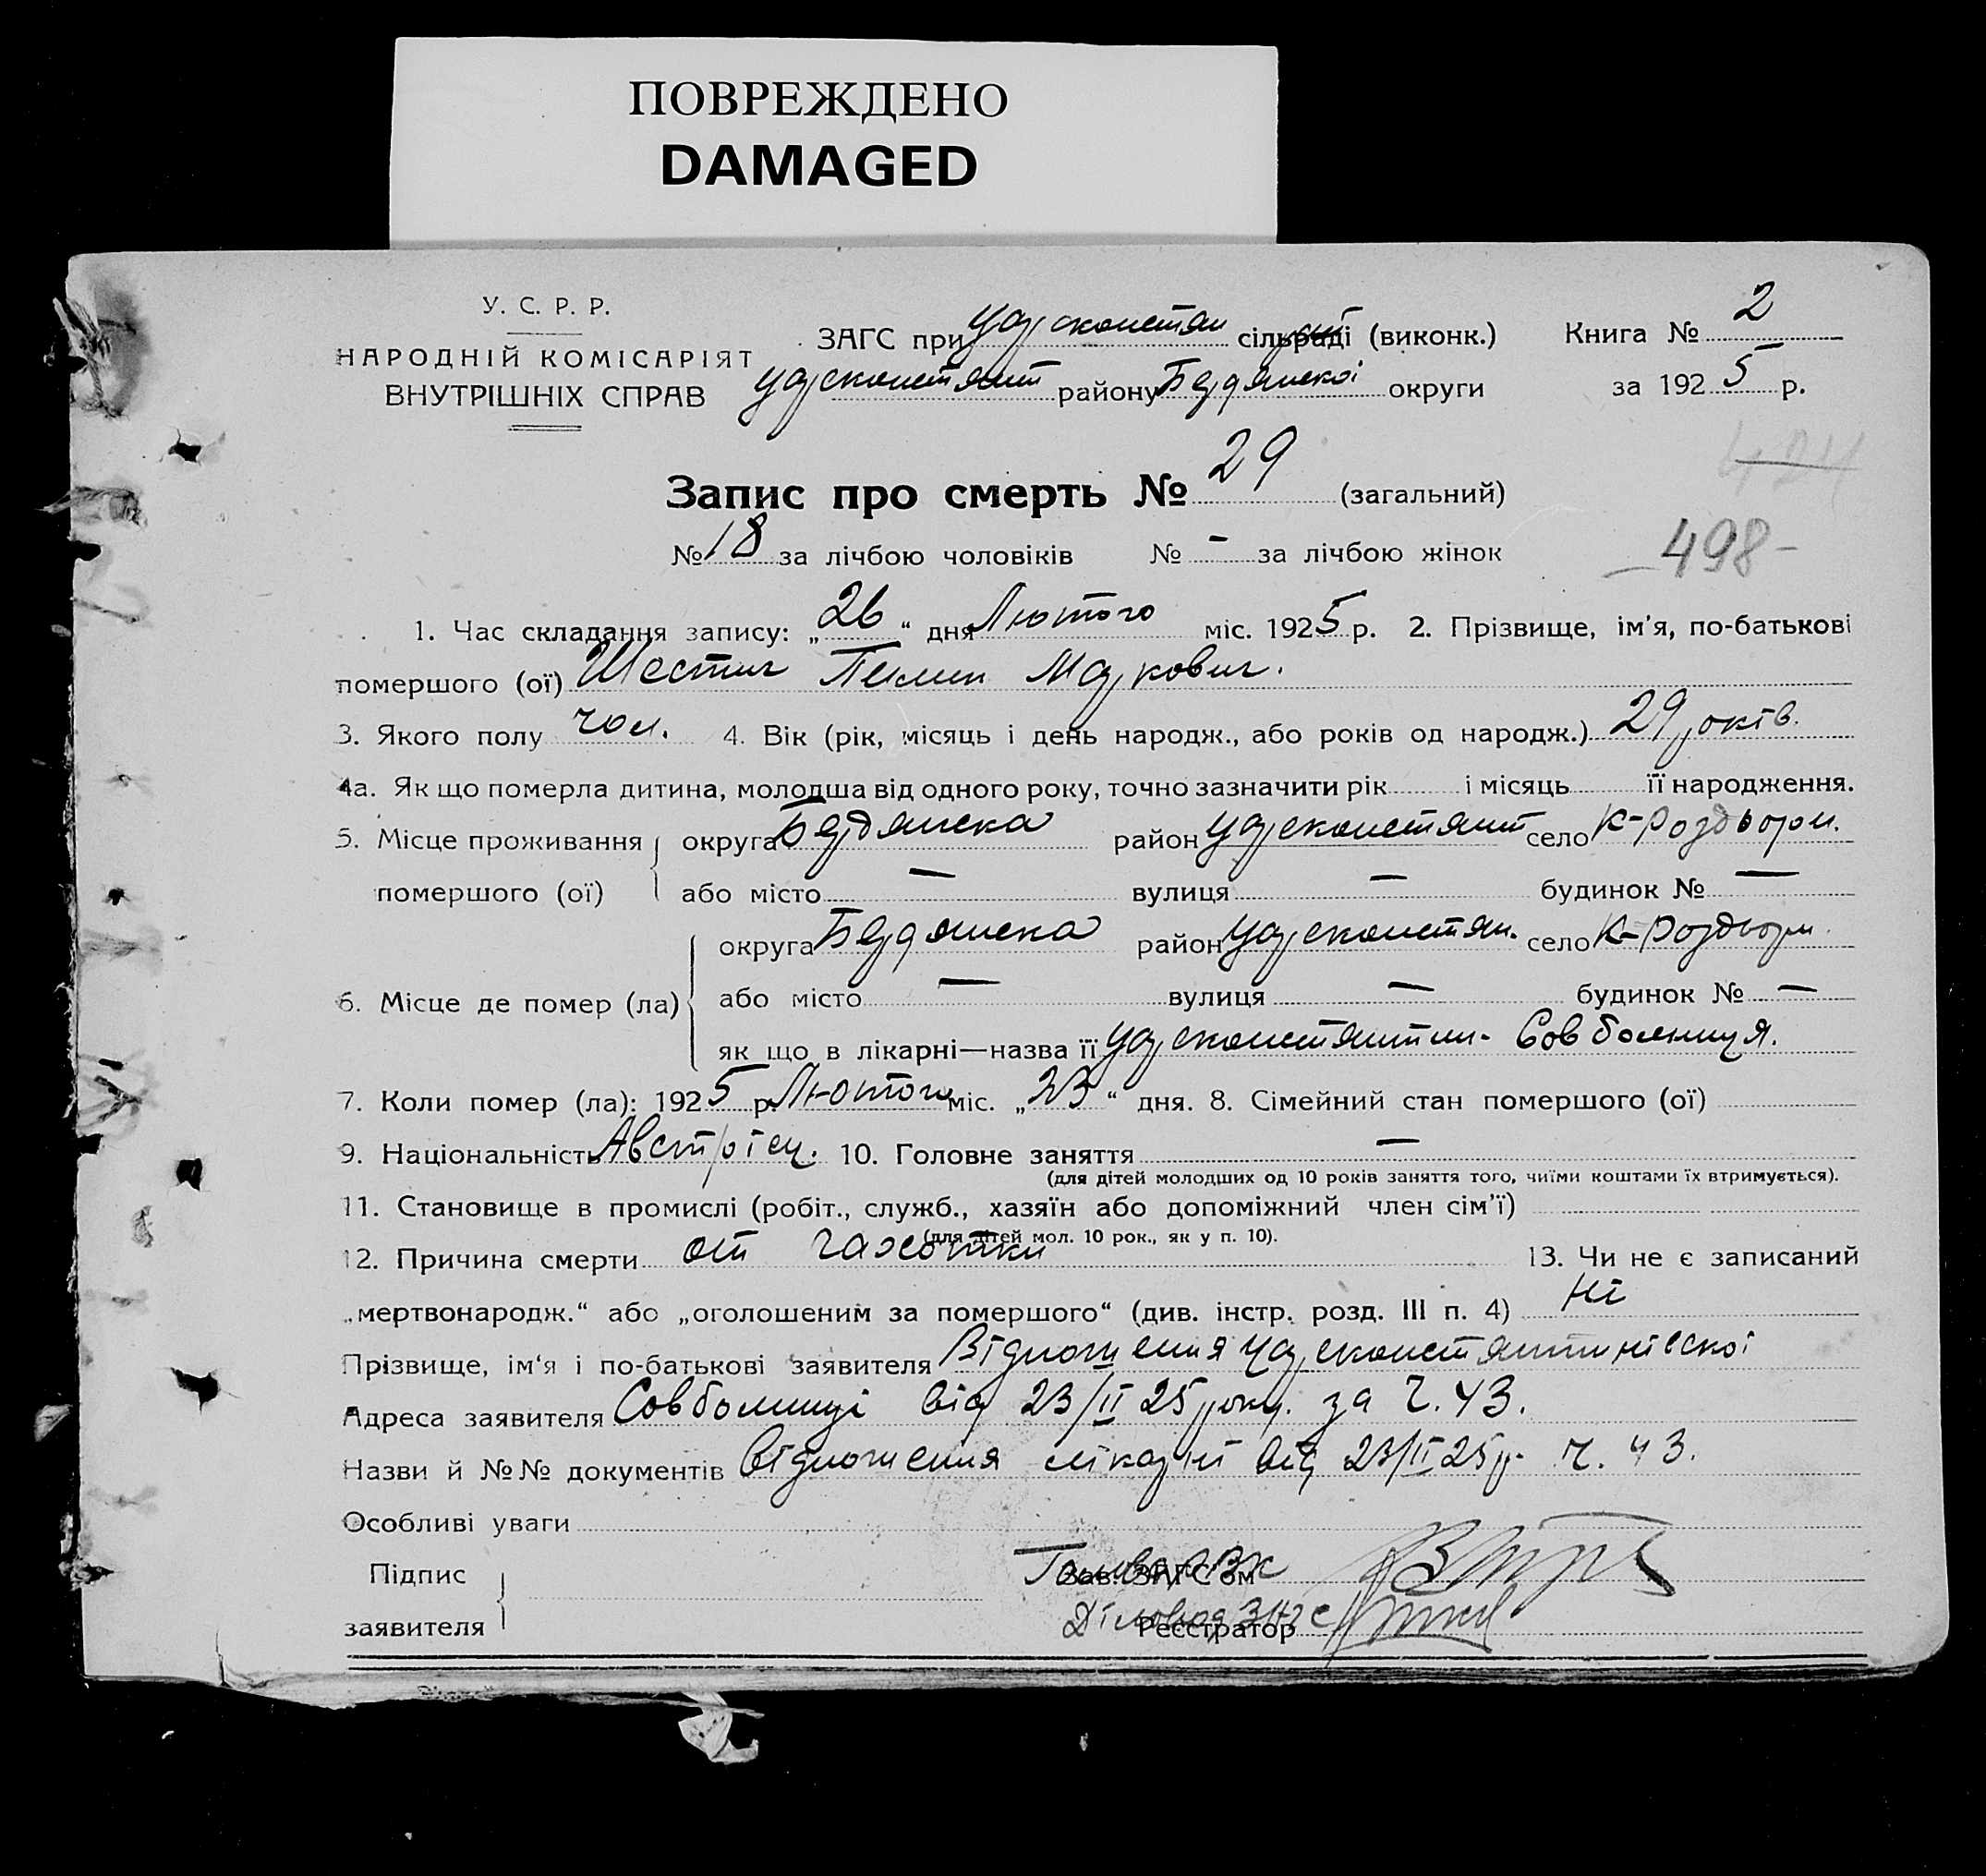 ПОВРЕЖДЕНО
DAMAGED
У. С. Р. Р.
НАРОДНІЙ КОМІСАРІЯТ
ВНУТРІШНІХ СПРАВ
ЗАГС при Царсконстан сільраді (виконк.)
Царсконстант району Бердянської округи
Книга № 2
за 1925 р.
Запис про смерть № 29 (загальний)
№ 18 за лічбою чоловіків № - за лічбою жінок
498-
1. Час складання запису: „26“ дня Лютого міс. 1925 р. 2. Прізвище, ім'я, по-батькові
помершого (ої) Шестич Маркович.
3. Якого полу чол. 4. Вік (рік, місяць і день народж., або років од народж.) 29 років.
4а. Як що померла дитина, молодша від одного року, точно зазначити рік і місяць її народження.
5. Місце проживання помершого (ої) округа Бердянска район Царсконстант село К-Роздори.
або місто — вулиця — будинок № —
6. Місце де помер (ла) округа Бердянска район Царсконстан. село К-Роздори.
або місто — вулиця — будинок № —
як що в лікарні—назва її Царсконстантин. Совбольниця.
7. Коли помер (ла): 1925 р. Лютого міс. „23“ дня. 8. Сімейний стан помершого (ої)
9. Національність Австрієц. 10. Головне заняття —
(для дітей молодших од 10 років заняття того, чиїми коштами їх втримується).
11. Становище в промислі (робіт., служб., хазяїн або допоміжний член сім'ї)
(для дітей мол. 10 рок., як у п. 10).
12. Причина смерти от чахотки 13. Чи не є записаний
„мертвонародж.“ або „оголошеним за помершого“ (див. інстр. розд. III п. 4) Ні
Прізвище, ім'я і по-батькові заявителя Відношення Царсконстантинівскої
Адреса заявителя Совбольниці від 23/II 25 року. за Ч. 43.
Назви й №№ документів Відношення лікарні від 23/II 25 р. Ч. 43.
Особливі уваги
Підпис заявителя
Голова РВК Зав. ЗАГС'ом
Діловод ЗАГС Реєстратор